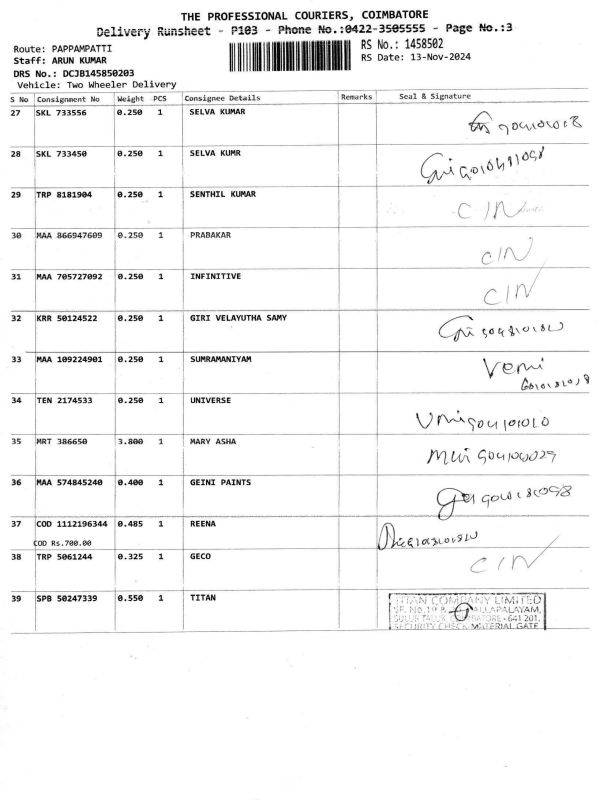 THE PROFESSIONAL COURIERS, COIMBATORE
Delivery Runsheet - P103 - Phone No.:0422-3505555 - Page No.:3
Route: PAPPAMPATTI
RS No.: 1458502
Staff: ARUN KUMAR
RS Date: 13-Nov-2024
DRS No.: DCJB145850203
Vehicle: Two Wheeler Delivery
S No Consignment No Weight PCS Consignee Details Remarks Seal & Signature
27 SKL 733556 0.250 1 SELVA KUMAR
28 SKL 733450 0.250 1 SELVA KUMR
29 TRP 8181904 0.250 1 SENTHIL KUMAR C/N
30 MAA 866947609 0.250 1 PRABAKAR C/N
31 MAA 705727092 0.250 1 INFINITIVE C/N
32 KRR 50124522 0.250 1 GIRI VELAYUTHA SAMY
33 MAA 109224901 0.250 1 SUMRAMANIYAM
34 TEN 2174533 0.250 1 UNIVERSE
35 MRT 386650 3.800 1 MARY ASHA
36 MAA 574845240 0.400 1 GEINI PAINTS
37 COD 1112196344 0.485 1 REENA
COD Rs.700.00
38 TRP 5061244 0.325 1 GECO C/N
39 SPB 50247339 0.550 1 TITAN
TITAN COMPANY LIMITED
SULUR TALUK, COIMBATORE - 641 201.
SECURITY CHECK MATERIAL GATE